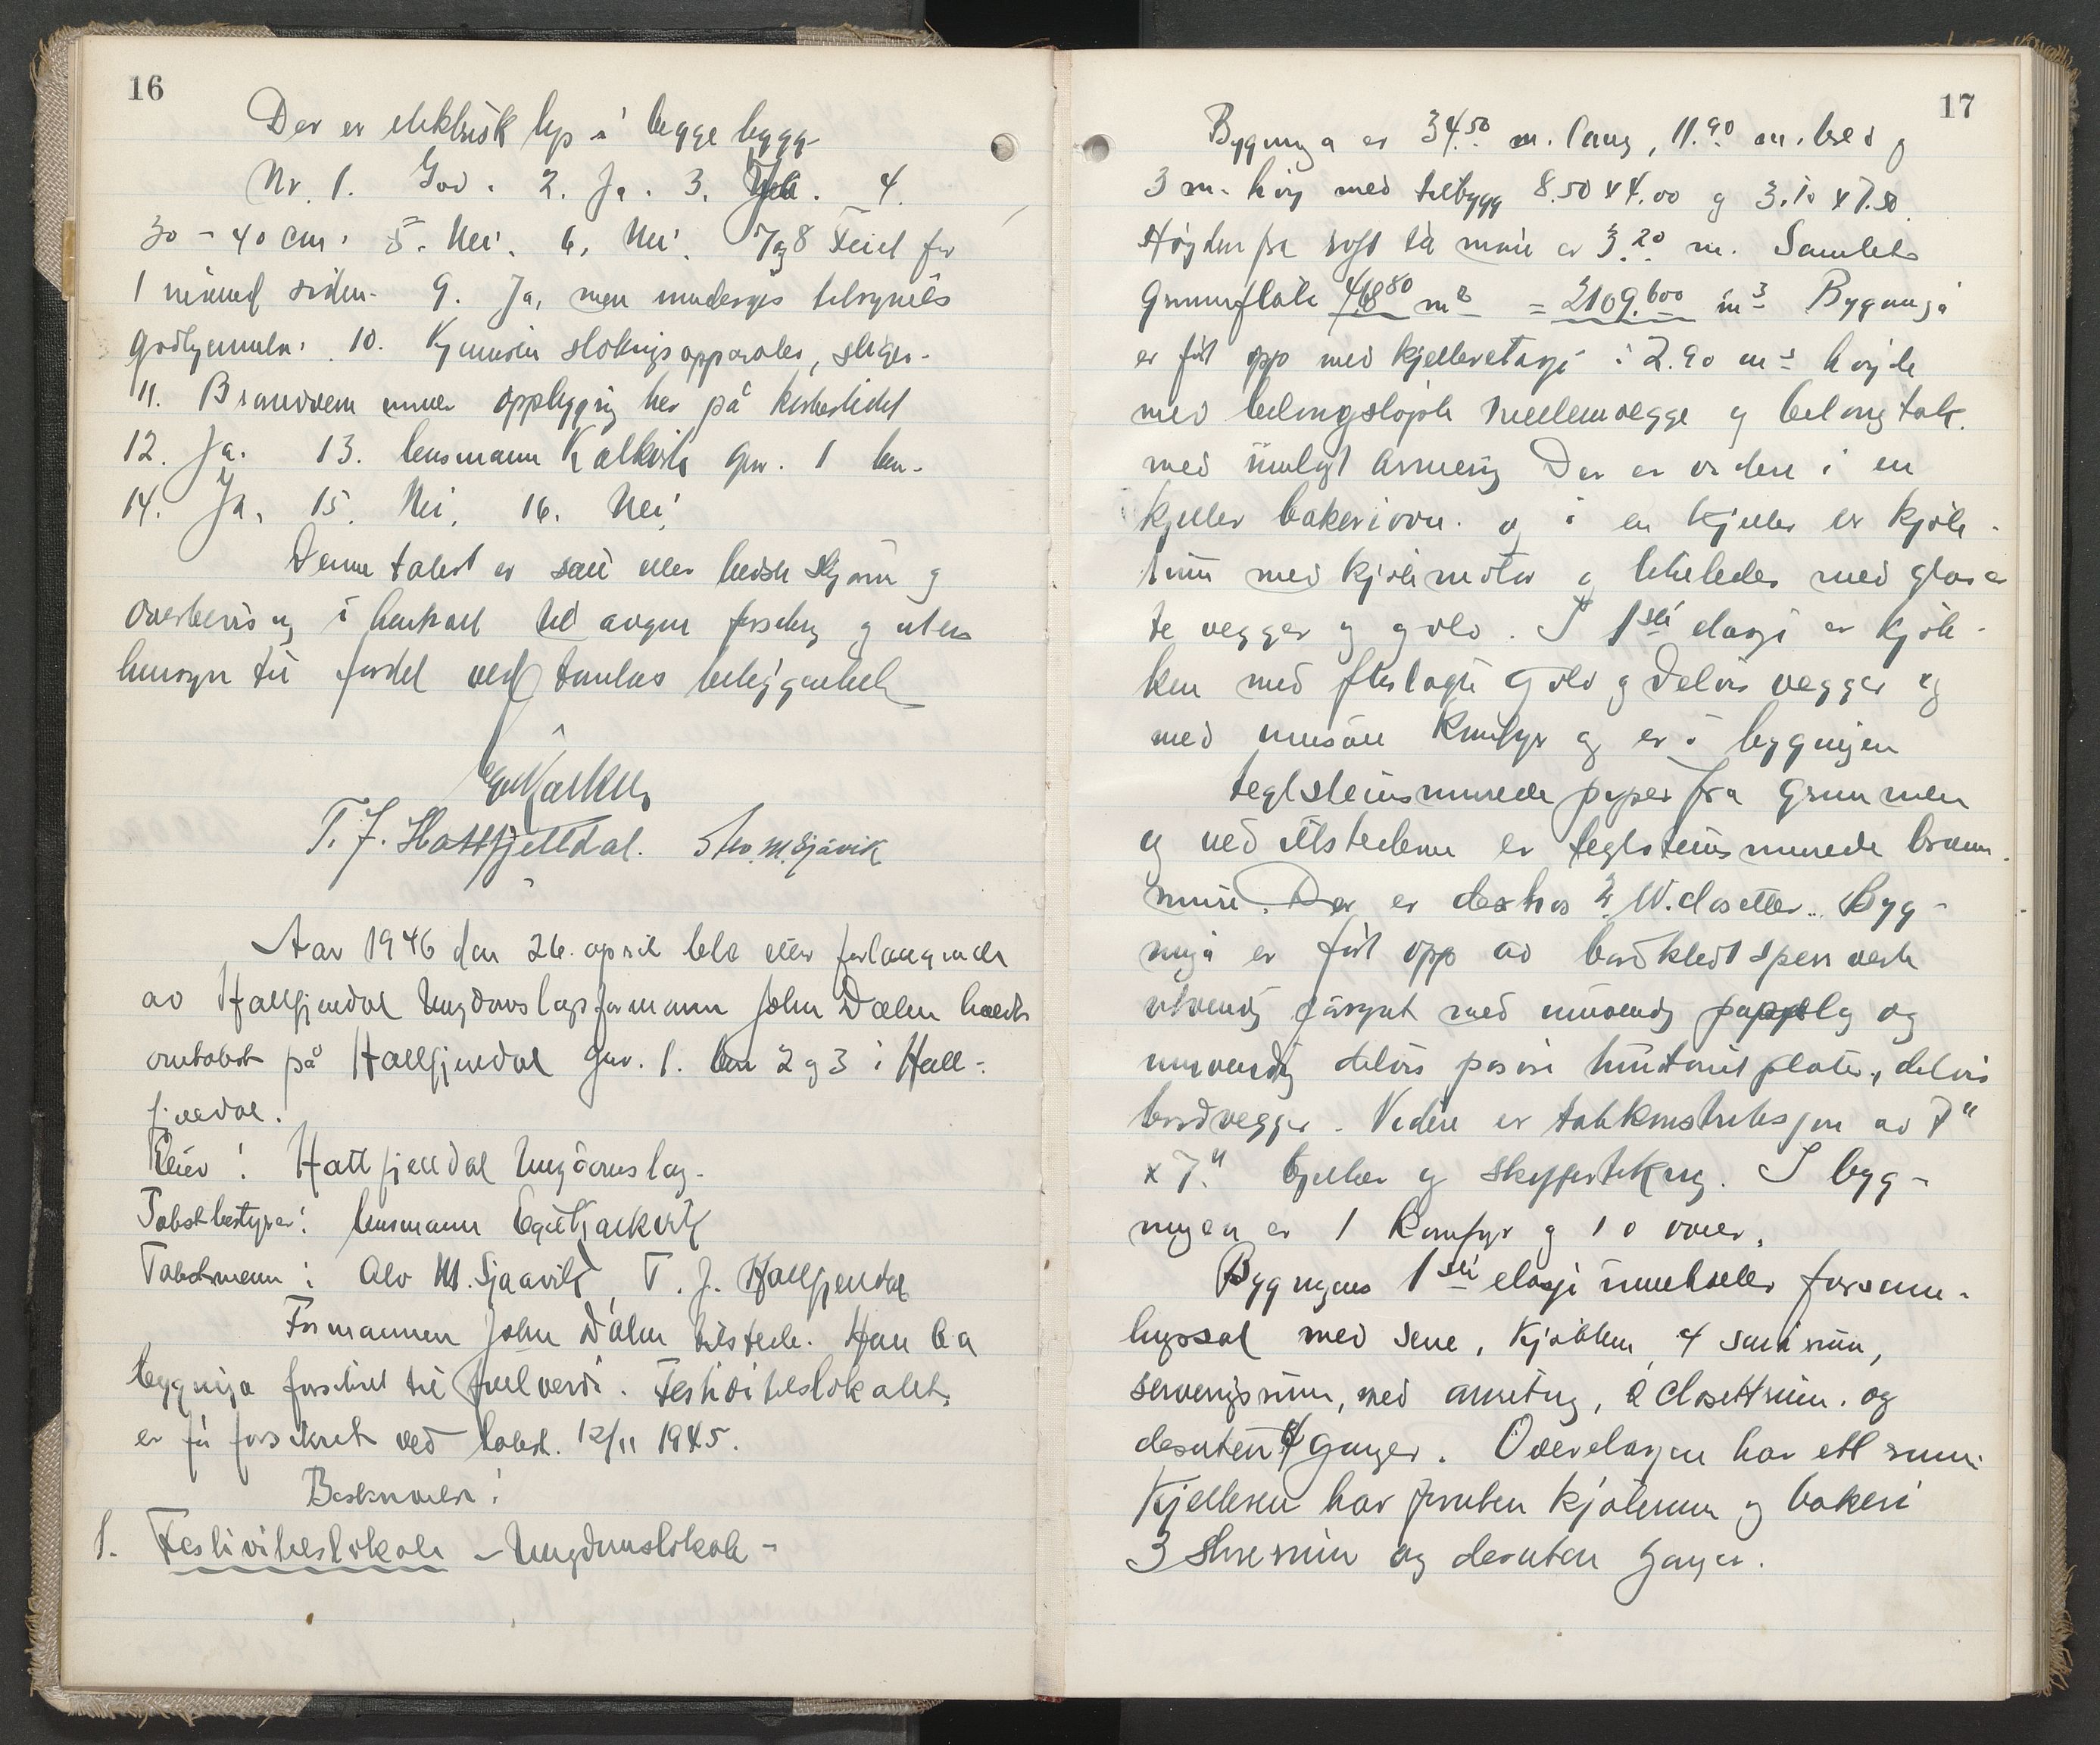 16
Der er elektrisk lys i begge bygg-
Nr. 1. God. 2. Ja. 3. Ja. 4.
30 - 40 cm. 5. Nei. 6. Nei. 7 og 8 Feiet for
1 måned siden. 9. Ja, men muligens
10. slokningsapparater, stiger.
11. Brandvern under oppbygging her på kirkestedet
12. Ja. 13. lensmann Kalkvik gnr. 1 bnr.
14. Ja. 15. Nei. 16. Nei.
Denne takst er satt etter beste skjønn og
overbevisning i henhold til avgitt forsikring og uten
hensyn til fordel ved tomtas beliggenhet
T. J. Hattfjelldal. Alv. M. Sjåvik
Aar 1946 den 26. april ble etter forlangende
av Hattfjelldal Ungdomslags formann John Dælen holdt
omtakst på Hattfjelldal gnr. 1. bnr 2 og 3 i Hatt-
fjelldal.
Eier: Hattfjelldal Ungdomslag.
Takstbestyrer: lensmann Egil Kalkvik
Takstmenn: Alv M. Sjaavik, T. J. Hattfjelldal
Formannen John Dælen tilstede. Han ba
bygninga forsikret til full verdi. Festivitetslokalet
er før forsikret ved takst. 12/11 1945.
Beskrivelse:
1. Festivitetslokale - Ungdomslokale -
17
Bygninga er 34.50 m. lang, 11.90 m. bred og
3 m. høy med tilbygg 8.50 x 4.00 og 3.10 x 7.50.
Høyden fra loft til møne er 3.20 m. Samlet
Grunnflate 468.80 m2 = 2109.600 m3 Bygninga
er ført opp med kjelleretasje i 2.90 m's høyde
med betongstøpte mellemvegge og betongtak.
med armering Der er videre i en
kjeller bakeriovn. og i en kjeller er kjøle-
rum med kjølemotor og med glaser-
te vegger og golv. I 1ste etasje er kjøk-
ken med flislagte golv og delvis vegger og
med komfyr og er i bygningen
teglsteinsmurede piper fra grunnen
og ved ildstedene er teglsteinsmurede brann-
mure. Der er dertil 2 W. closetter. Byg-
ninga er ført opp av bordkledt sperreverk
utvendig panelt med innvendig papplag og
innvendig delvis plater, delvis
bordvegger. Videre er takkonstruksjon av 7"
x 7" bjelker og skifertekning. I byg-
ningen er 1 komfyr og 10 ovner.
Bygningens 1ste etasje inneholder forsam-
lingssal med scene, kjøkken, 4 små rum,
serveringsrum, med anretning, 2 closettrum. og
desuten 4 ganger. Overetasjen har ett rum.
Kjelleren har foruten kjølerum og bakeri
3 store rum og desuten ganger.